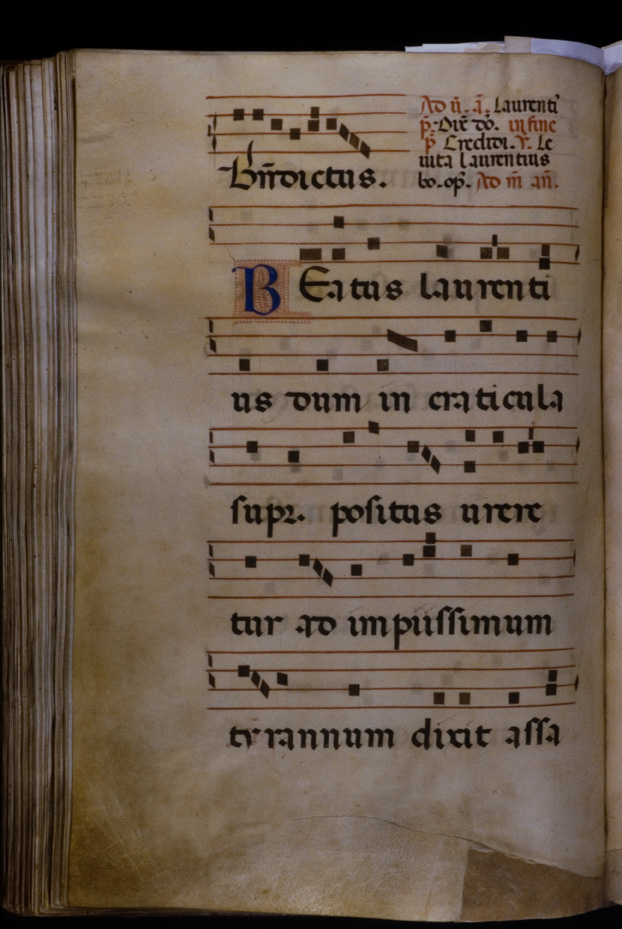 Bn̄dictus.
Ad ii. ā. Laurenti
p̄. Oīē dō. in fine
p̄ Credidi. V. Le
uita laurentius
bo. op̄. Ad m̄ an̄.
BEatus laurenti
us dum in craticula
supr. positus urere
tur ad impiissimum
tyrannum dixit assa